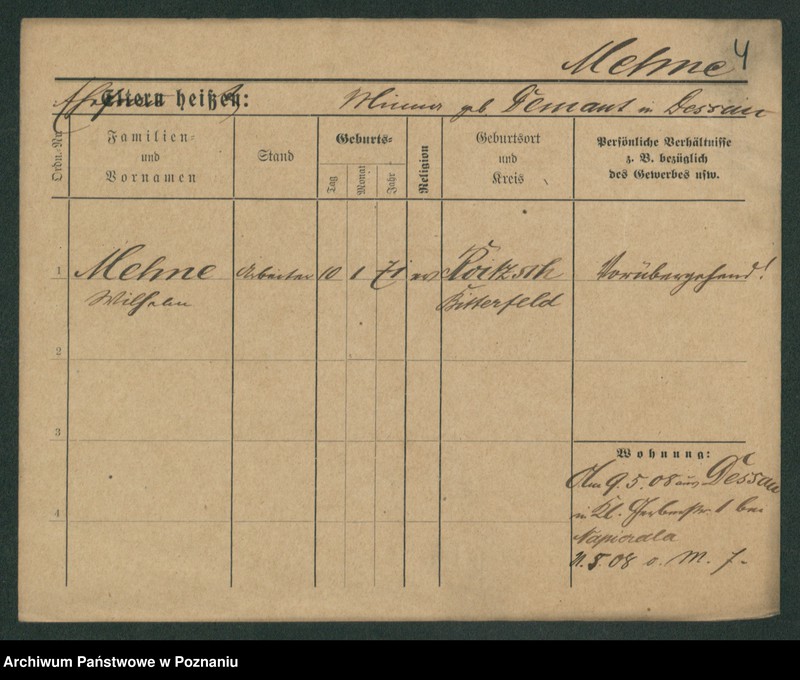 Mehne 4
Eltern heißen: Minna geb. Demant in Dessau
Ordn.-Nr.
Familien-
und
Vornamen
Stand
Geburts-
Tag
Monat
Jahr
Religion
Geburtsort
und
Kreis
Persönliche Verhältnisse
z. B. bezüglich
des Gewerbes usw.
1 Mehne Arbeiter 10 1 71 ev Roitzsch Vorübergehend!
Wilhelm Bitterfeld
2
3
Wohnung:
Am 9.5.08 aus Dessau
in Kl. Gerberstr. 1 bei
4
Napierala
11.5.08 o. M. 7.
Archiwum Państwowe w Poznaniu